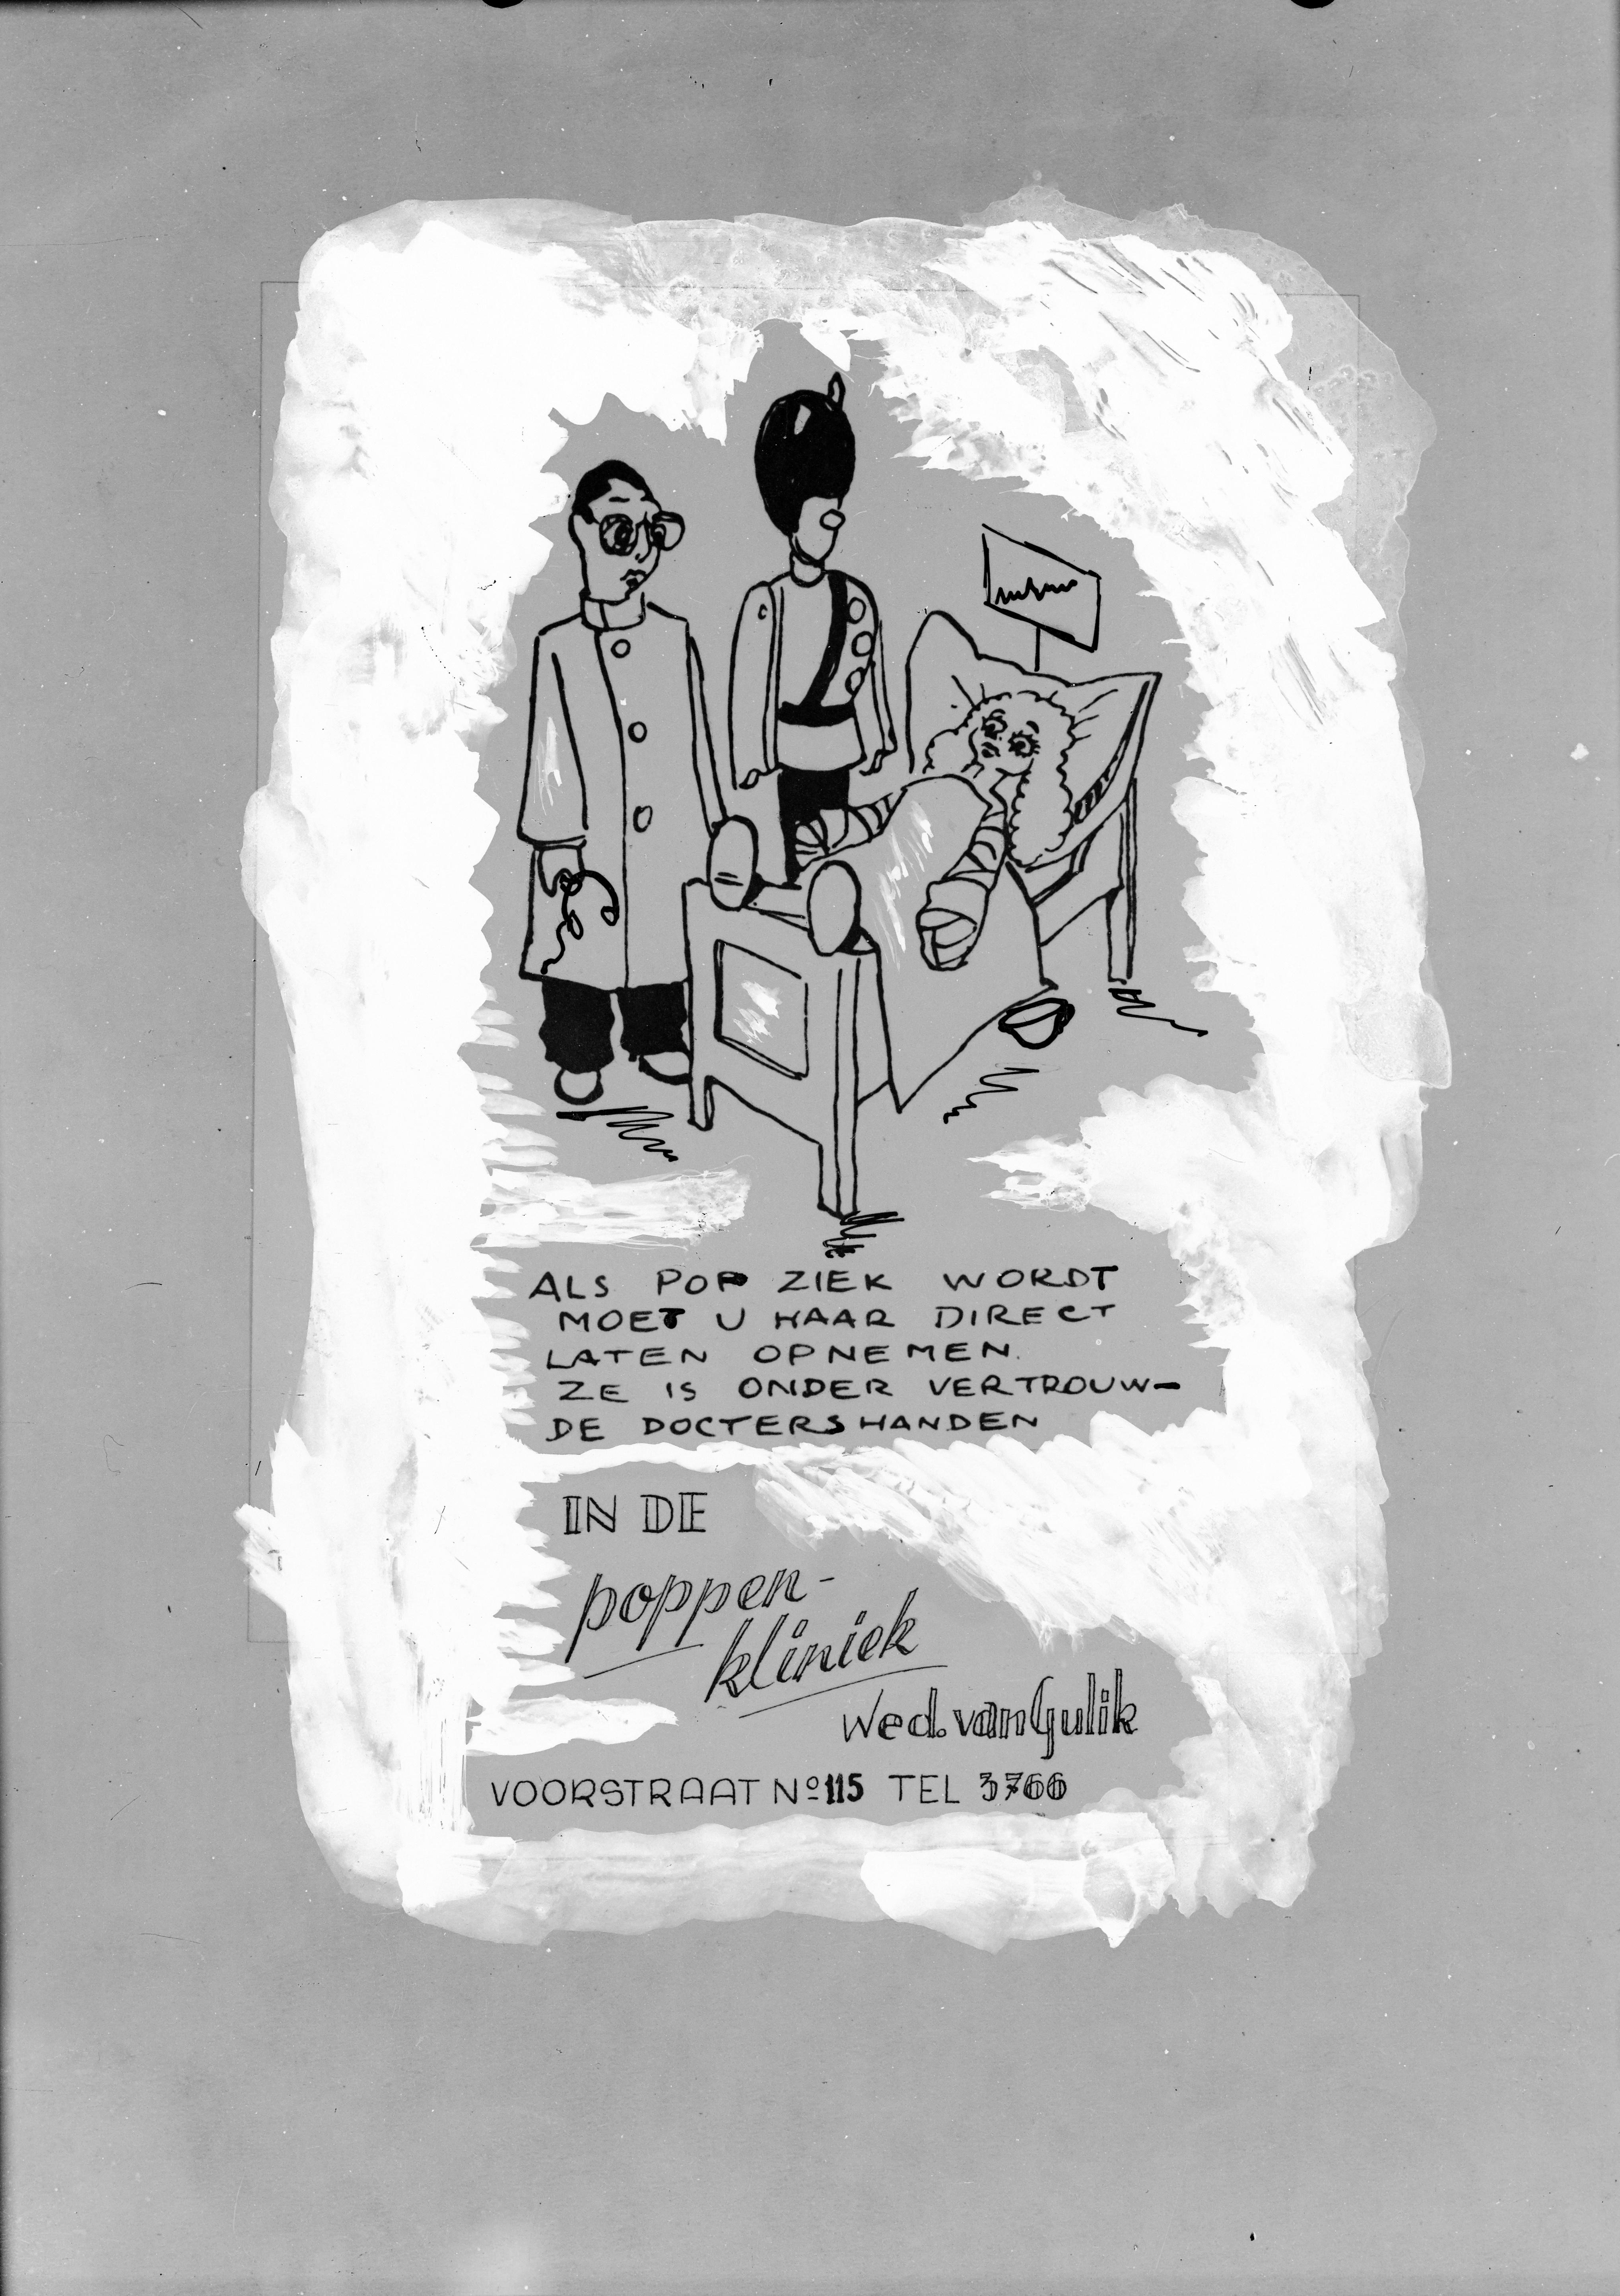 ALS POP ZIEK WORDT
MOET U HAAR DIRECT
LATEN OPNEMEN.
ZE IS ONDER VERTROUW-
DE DOCTERSHANDEN
IN DE
poppen-
kliniek
Wed. van Gulik
VOORSTRAAT Nº 115 TEL 3766